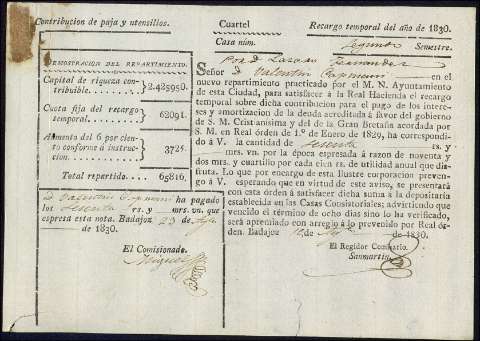 Contribucion de paja y utensilios.
Cuartel
Recargo temporal del año de 1830.
Casa núm.
Segundo Semestre.
DEMOSTRACION DEL REPARTIMIENTO.
Capital de riqueza contribuible. 2.425950.
Cuota fija del recargo temporal. 62091.
Aumento del 6 por ciento conforme á instruccion. 3725.
Total repartido. 65816.
D. Valentin ha pagado
los sesenta rs. y mrs. vn. que
espresa esta nota. Badajoz 23 de
de 1830.
El Comisionado.
Por D. Fernandez
Señor D. Valentin en el
nuevo repartimiento practicado por el M. N. Ayuntamiento
de esta Ciudad, para satisfacer á la Real Hacienda el recargo
temporal sobre dicha contribucion para el pago de los intereses
y amortizacion de la deuda acreditada á favor del gobierno
de S. M. Cristianísima y del de la Gran Bretaña acordada por
S. M. en Real órden de 1.º de Enero de 1829, ha correspondido
á V. la cantidad de sesenta rs. y
mrs. vn. por la época espresada á razon de noventa y
dos mrs. y cuartillo por cada cien rs. de utilidad anual que disfruta.
Lo que por encargo de esta Ilustre corporacion prevengo
á V. esperando que en virtud de este aviso, se presentará
con esta órden á satisfacer dicha suma á la depositaría
establecida en las Casas Consistoriales; advirtiendo que
vencido el término de ocho dias sino lo ha verificado,
será apremiado con arreglo á lo prevenido por Real órden.
Badajoz de de 1830.
El Regidor Comisario.
Sanmartin